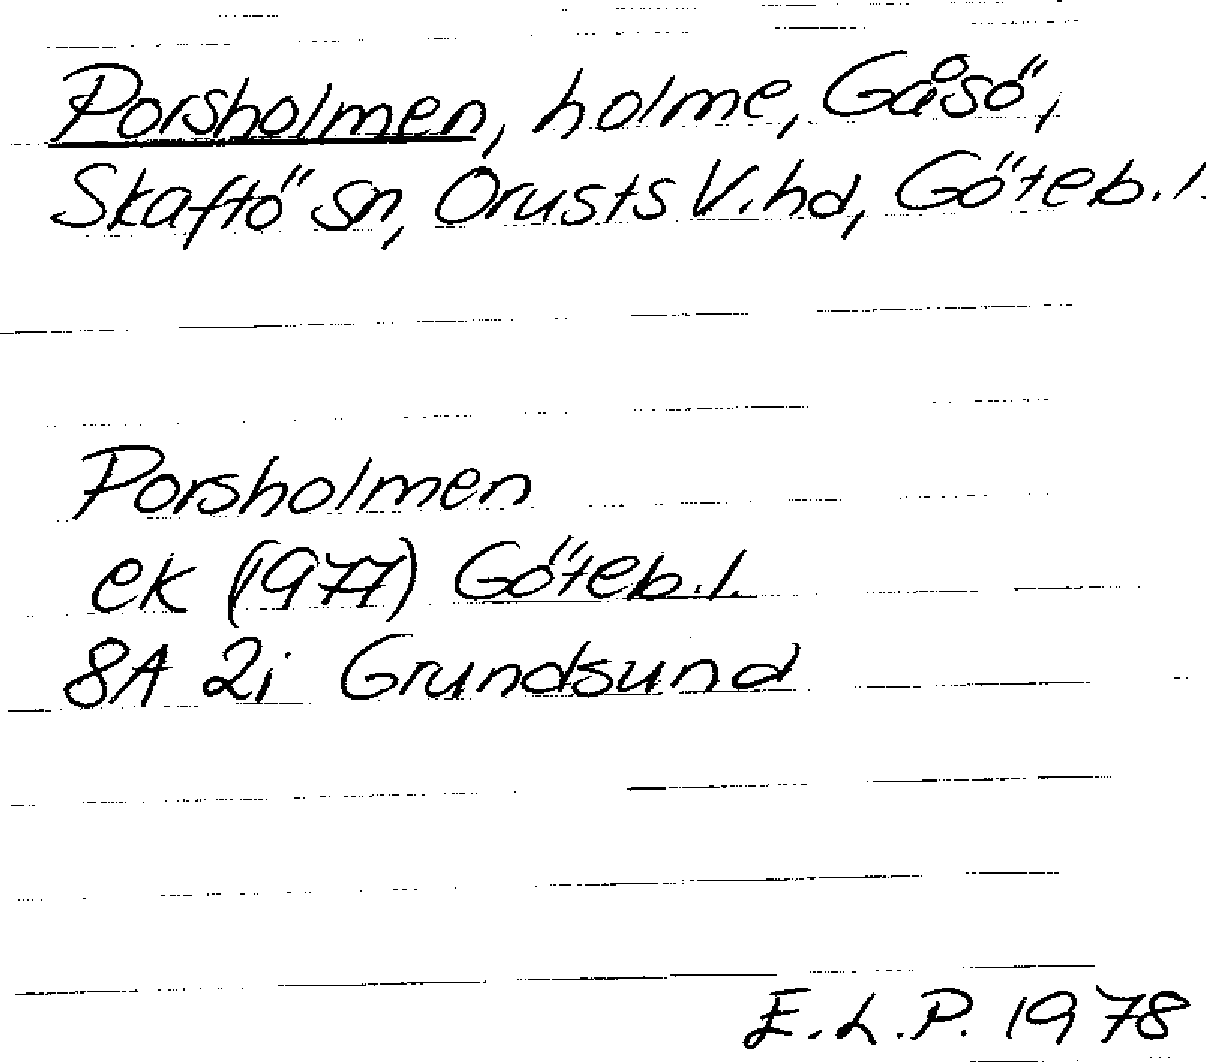 Porsholmen, holme, Gåsö,
Skaftö sn, Orusts V.hd, Göteb.l.
Porsholmen
ek (1977) Göteb.l.
8A 2i Grundsund
E.L.P. 1978